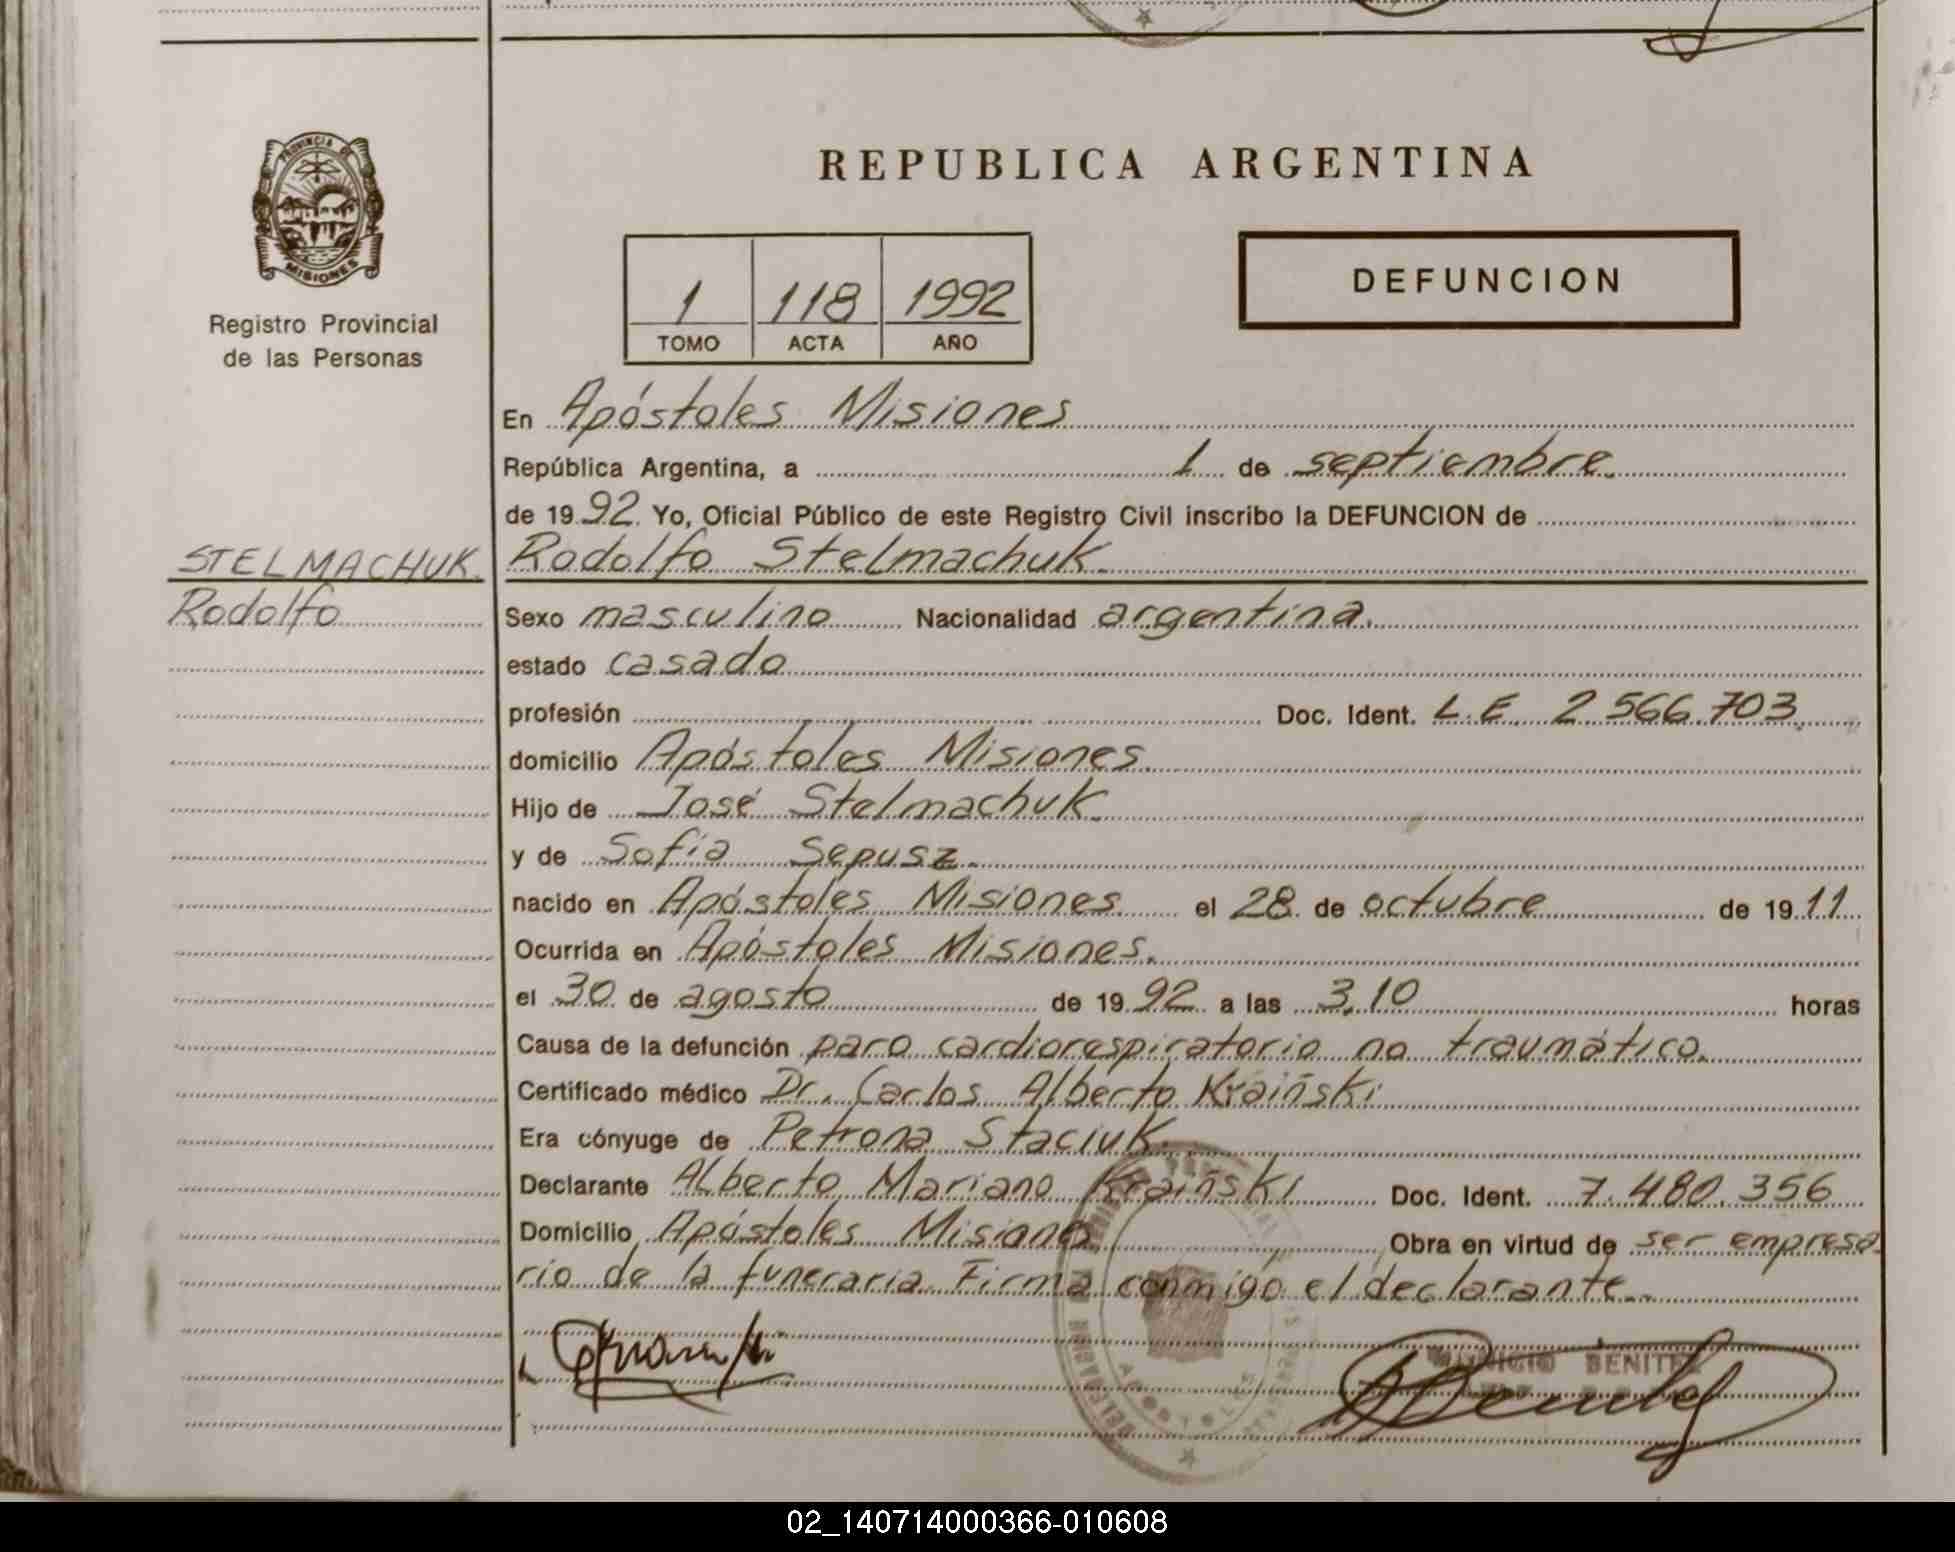 PROVINCIA DE
MISIONES
Registro Provincial
de las Personas
REPUBLICA ARGENTINA
1 118 1992
TOMO ACTA AÑO
DEFUNCION
En Apóstoles Misiones
República Argentina, a 1 de septiembre.
de 1992. Yo, Oficial Público de este Registro Civil inscribo la DEFUNCION de
STELMACHUK. Rodolfo Stelmachuk.
Rodolfo
Sexo masculino Nacionalidad argentina.
estado casado
profesión Doc. Ident. L.E. 2.566.703.
domicilio Apóstoles Misiones.
Hijo de José Stelmachuk.
y de Sofía Sepusz.
nacido en Apóstoles Misiones el 28 de octubre de 1911
Ocurrida en Apóstoles Misiones.
el 30 de agosto de 1992 a las 3,10 horas
Causa de la defunción paro cardiorespiratorio no traumático.
Certificado médico Dr. Carlos Alberto Kraiñski
Era cónyuge de Petrona Staciuk.
Declarante Alberto Mariano Kraiñski Doc. Ident. 7.480.356
Domicilio Apóstoles Misiones Obra en virtud de ser empresa
rio de la funeraria. Firma conmigo el declarante.
BENITEZ
APOSTOLES
02_140714000366-010608